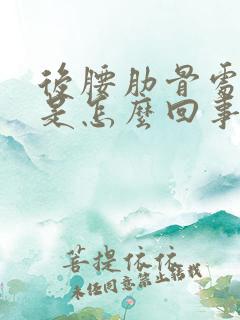 後腰肋骨處
是怎麼回事
菩提依依
未經同意禁止轉載